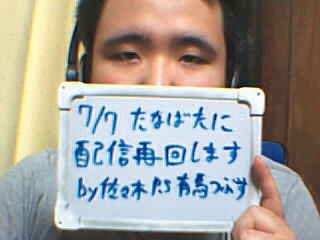 7/7 たなばたに
配信再回します
by佐々木 P.S 有馬つぶす